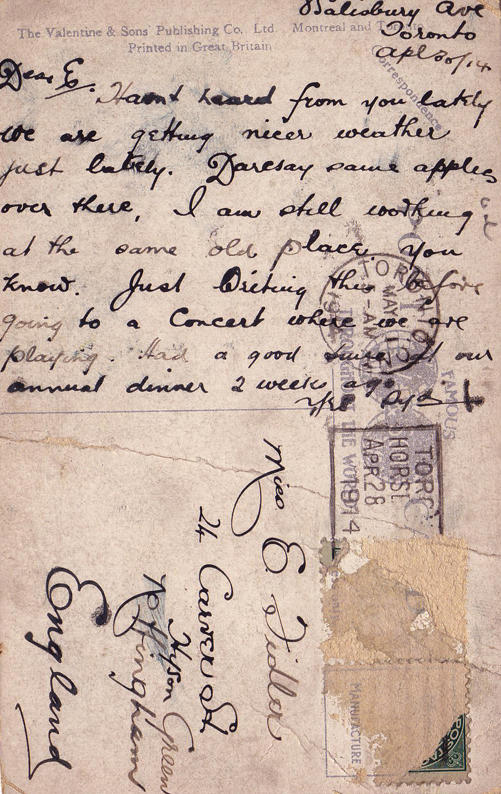 The Valentine & Sons' Publishing Co., Ltd. Montreal and Toronto
Printed in Great Britain
Correspondence
Salisbury Ave
Toronto
Apl 30/14
Dear E.
Havnt heard from you lately
we are getting nicer weather
just lately. Daresay same applies
over there, I am still working
at the same old place you
know. Just writing this before
going to a Concert where we are
playing. Had a good time at our
annual dinner 2 weeks ago.
Miss E Fidler
24 Carver St
Hyson Green
Nottingham
England
TORONTO
MAY 1
FAMOUS
THE WORLD
APR 28
1914
MANUFACTURE